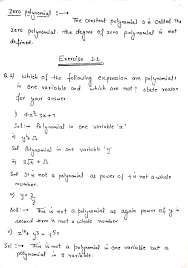 Zero polynomial :→
The constant polynomial 0 is called the
zero polynomial. the degree of zero polynomial is not
defined.
Exercise 2.1
Q.1) which of the following expression are polynomials
in one variable and which are not? state reason
for your answer.
i) 4x²-3x+7
Sol :→ Polynomial in one variable 'x'
ii) y²+√2
Sol Polynomial in one variable 'y'
iii) 3√t + t√2
Sol It is not a polynomial as power of t is not a whole
number.
iv) y+2/y
Sol :→ This is not a polynomial as again power of y in
second term is not a whole number
v) x¹⁰+y³+t⁵⁰
Sol :→ This is not a polynomial in one variable but a
polynomial in 3 variable.